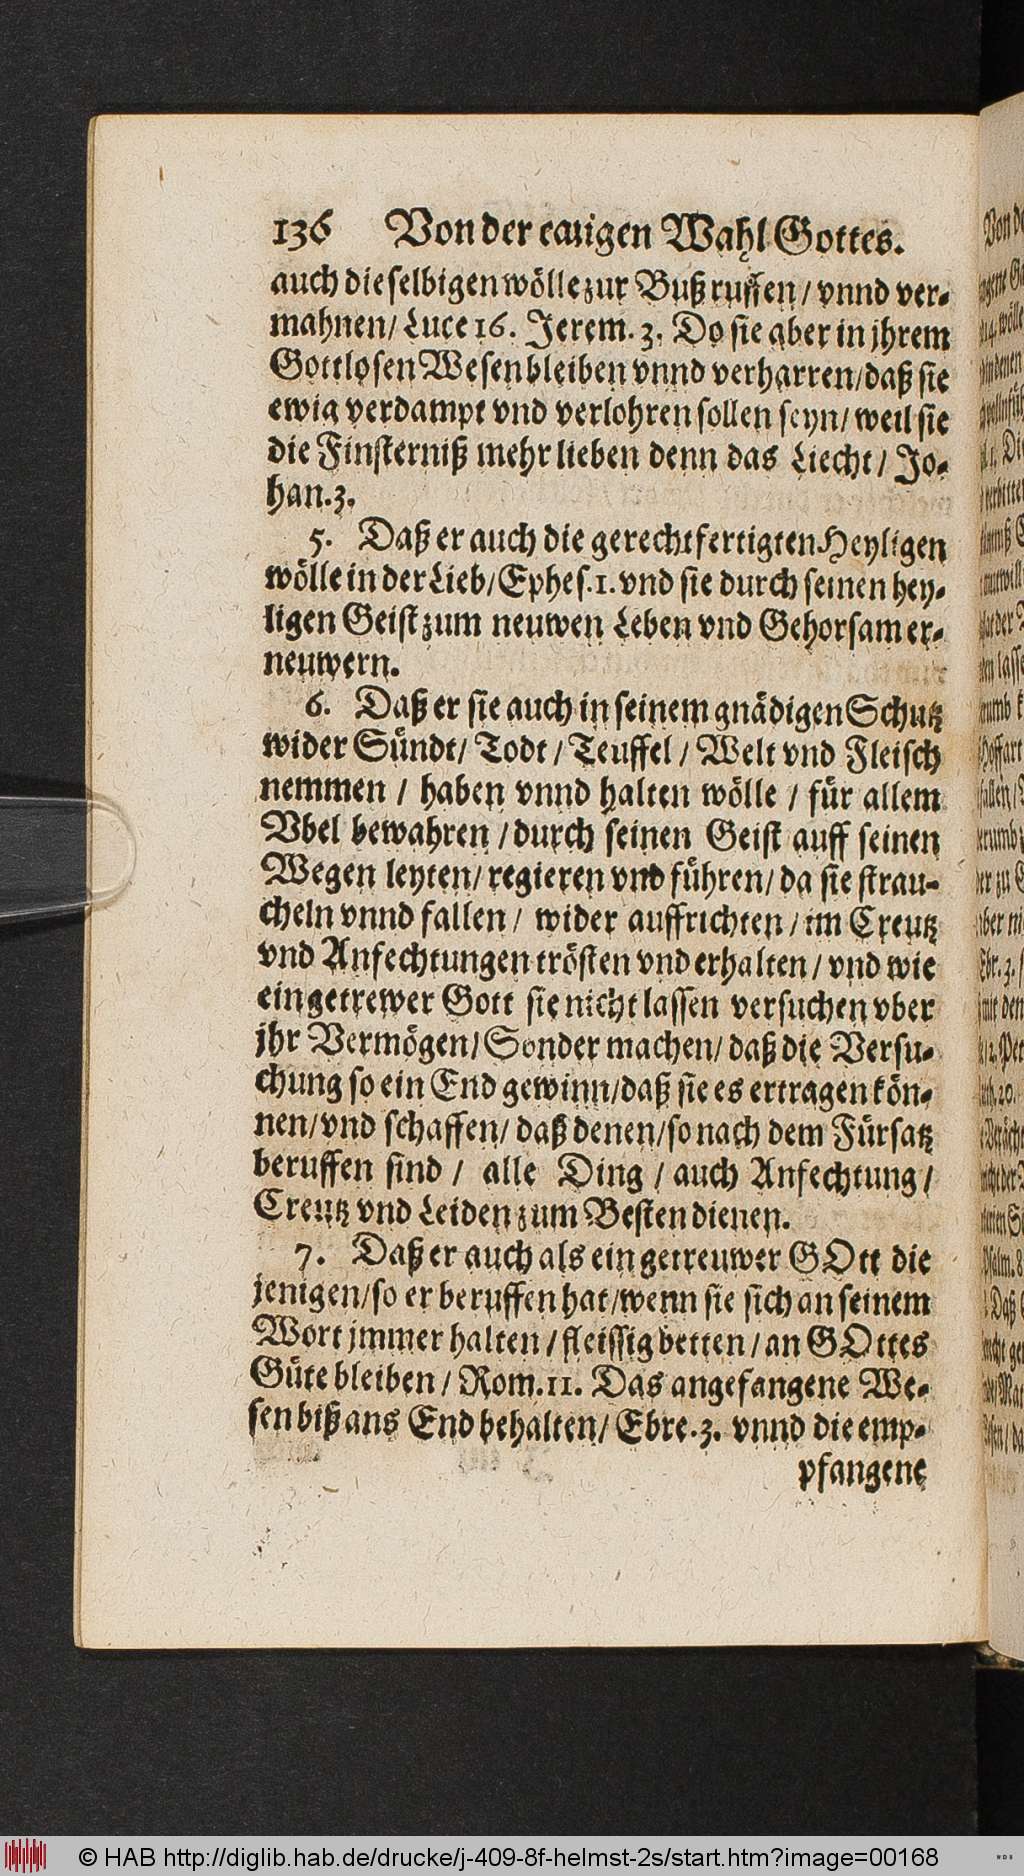 136 Von der ewigen Wahl Gottes.
auch dieselbigen wölle zur Buß ruffen / vnnd ver-
mahnen / Luce 16. Jerem. 3. Do sie aber in jhrem
Gottlosen Wesen bleiben vnnd verharren / daß sie
ewig verdampt vnd verlohren sollen seyn / weil sie
die Finsterniß mehr lieben denn das Liecht / Jo-
han. 3.
5. Daß er auch die gerechtfertigten Heyligen
wölle in der Lieb / Ephes. 1. vnd sie durch seinen hey-
ligen Geist zum neuwen Leben vnd Gehorsam er-
neuwern.
6. Daß er sie auch in seinem gnädigen Schutz
wider Sündt / Todt / Teuffel / Welt vnd Fleisch
nemmen / haben vnnd halten wölle / für allem
Vbel bewahren / durch seinen Geist auff seinen
Wegen leyten / regieren vnd führen / da sie strau-
cheln vnnd fallen / wider auffrichten / im Creutz
vnd Anfechtungen trösten vnd erhalten / vnd wie
ein getrewer Gott sie nicht lassen versuchen vber
jhr Vermögen / Sonder machen / daß die Versu-
chung so ein End gewinn / daß sie es ertragen kön-
nen / vnd schaffen / daß denen / so nach dem Fürsatz
beruffen sind / alle Ding / auch Anfechtung /
Creutz vnd Leiden zum Besten dienen.
7. Daß er auch als ein getreuwer GOtt die
jenigen / so er beruffen hat / wenn sie sich an seinem
Wort jmmer halten / fleissig betten / an GOttes
Güte bleiben / Rom. 11. Das angefangene We-
sen biß ans End behalten / Ebre. 3. vnnd die emp-
pfangene
© HAB http://diglib.hab.de/drucke/j-409-8f-helmst-2s/start.htm?image=00168